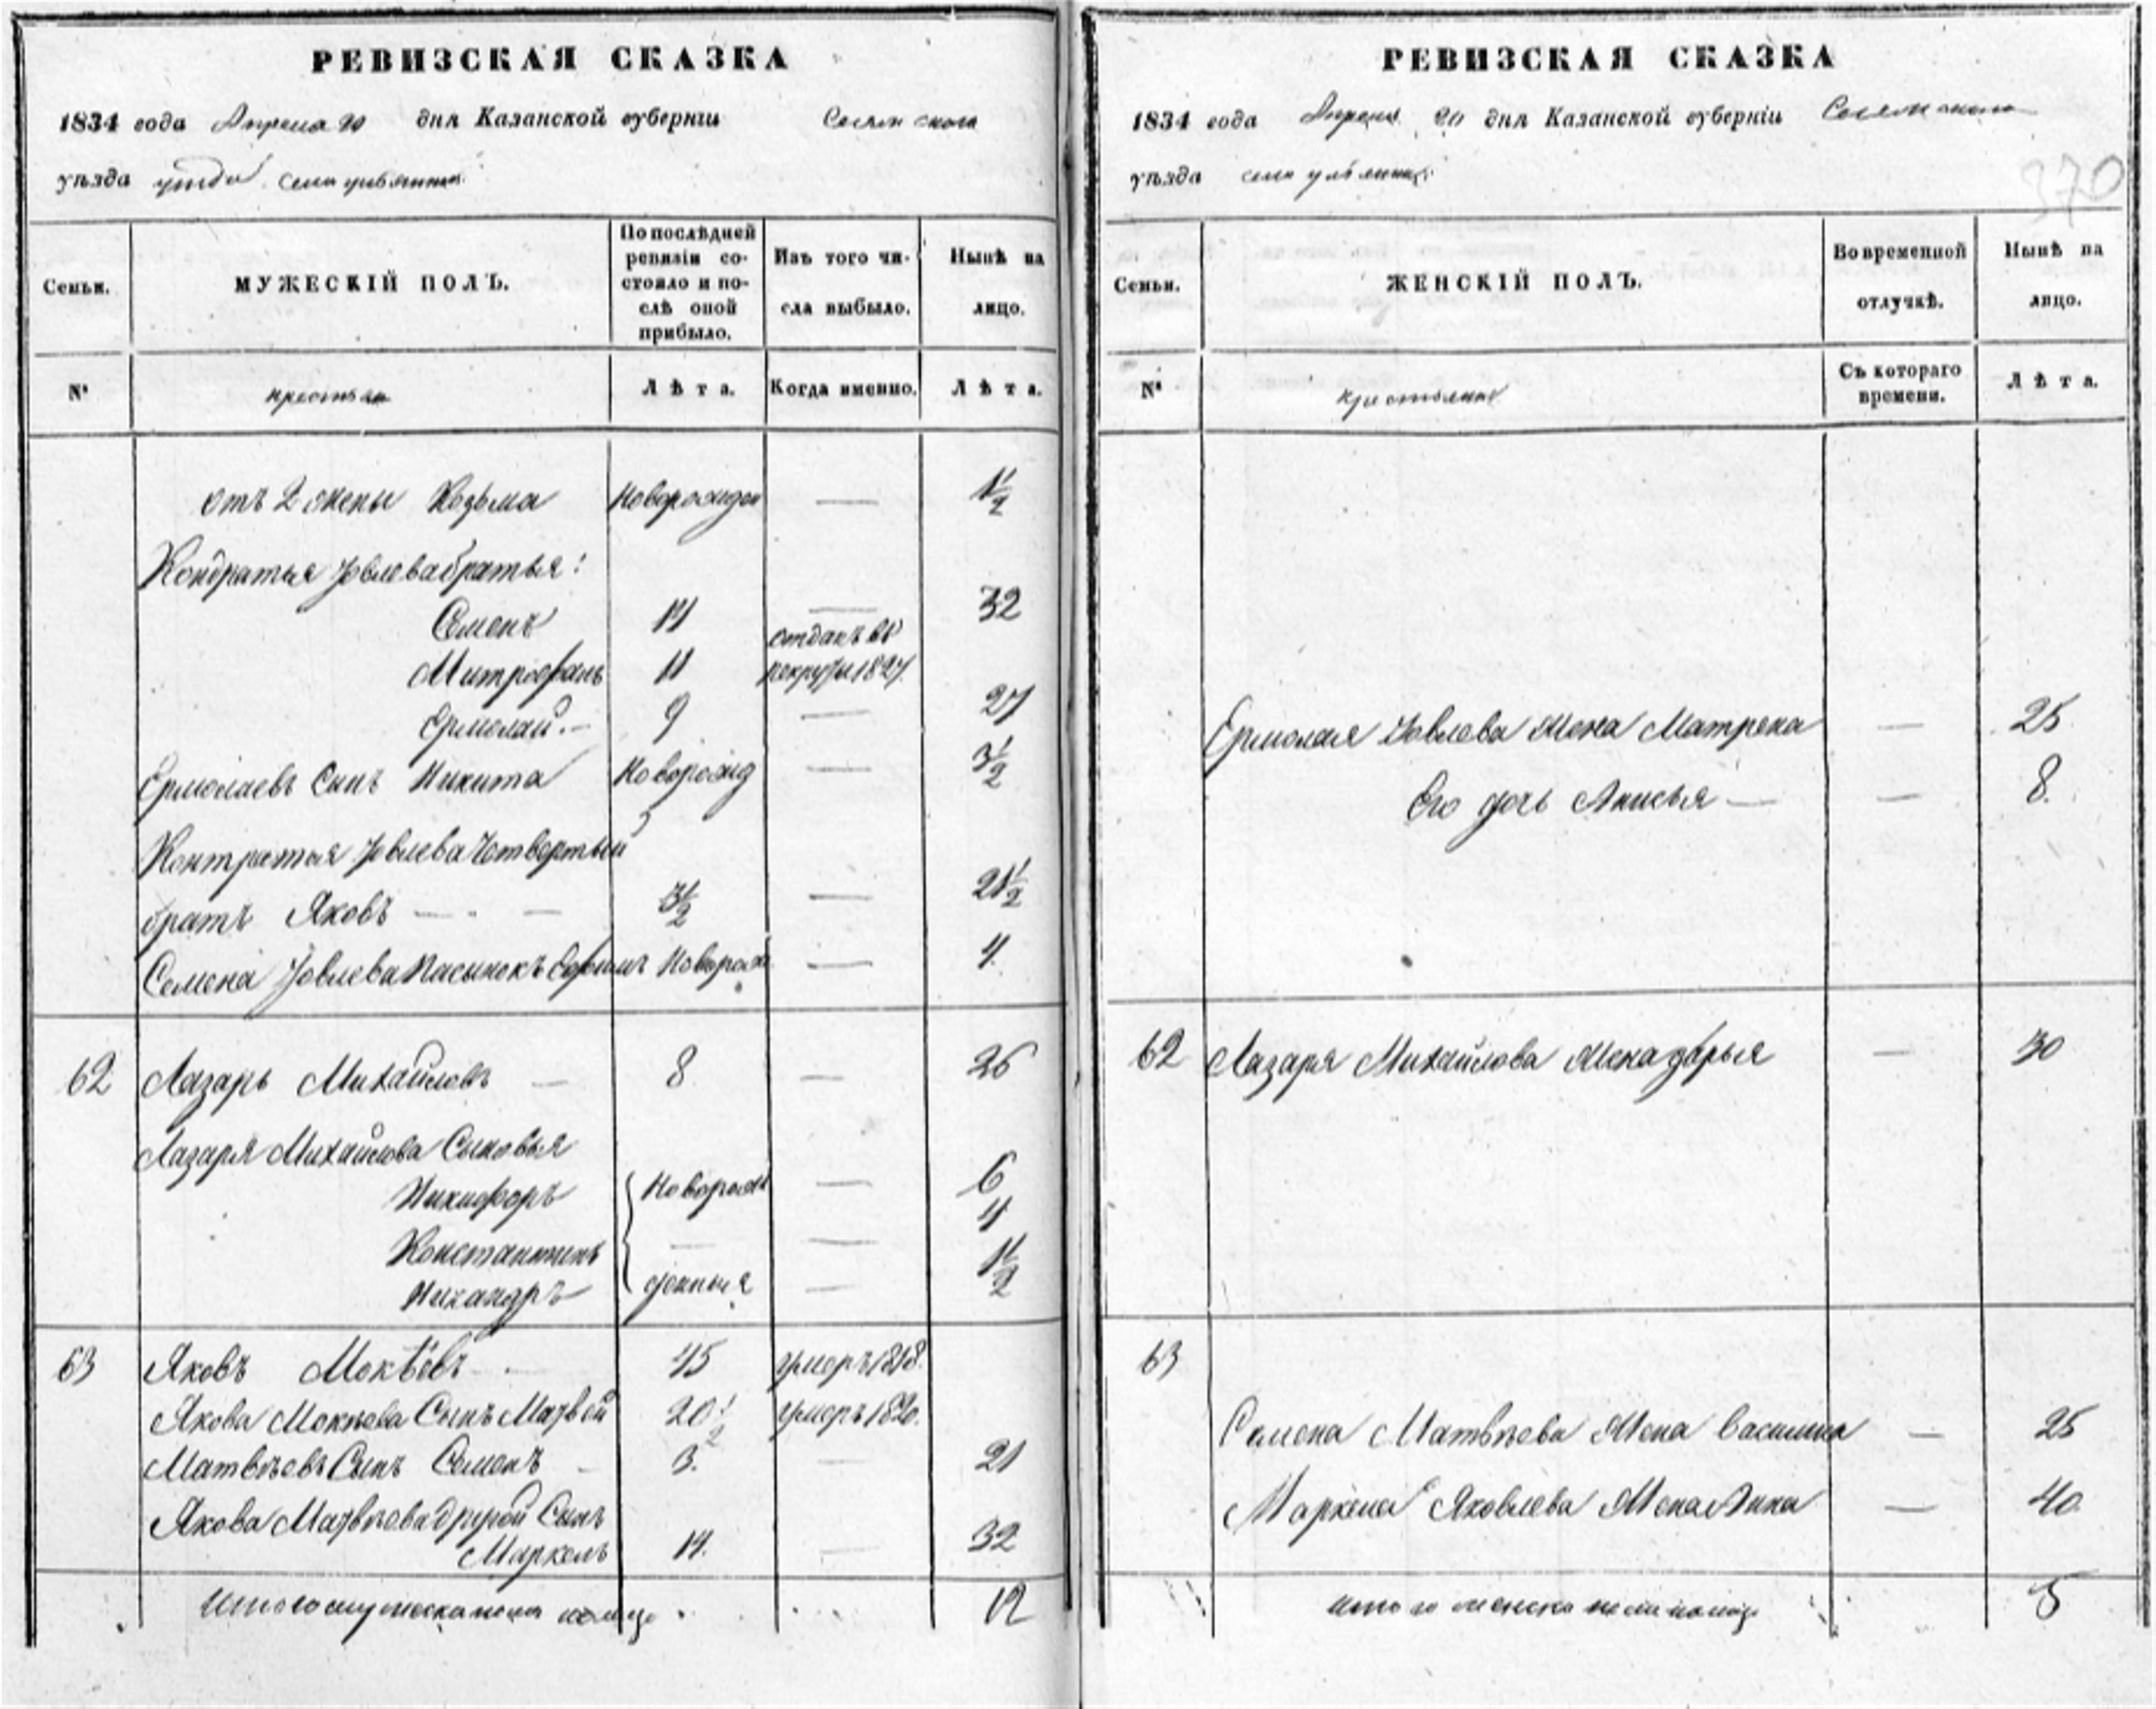 РЕВИЗСКАЯ СКАЗКА
1834 года Апреля 20 дня Казанской губерніи
уѣзда
Семьи.
МУЖЕСКІЙ ПОЛЪ.
По послѣдней ревизіи состояло и послѣ оной прибыло.
Изъ того числа выбыло.
Нынѣ на лицо.
№
крестьян
Лѣта.
Когда именно.
Лѣта.
отъ 2 жены Козьма Новорожден — 1½
Кондратья Іовлева братья:
Семенъ 14 — 32
Митрофанъ 11 отданъ въ рекруты 1827.
Ермолай. — 9 — 27
Ермолаевъ Сынъ Никита Новорожд — 3½
Контратья Іовлева Четвертый
братъ Яковъ — — 3½ — 21½
Семена Іовлева Пасынокъ Ефимъ Новорож — 4.
62 Лазарь Михайловъ — 8 — 26
Лазаря Михайлова Сыновья
Никифоръ Новорож — 6
Константинъ — — 4
Никандръ денныя — 1½
63 Яковъ Мокѣевъ — 45 умеръ 1818.
Якова Мокѣева Сынъ Матвѣй 20½ умеръ 1820.
Матвѣевъ Сынъ Семенъ — 3. — 21
Якова Матвѣева другой Сынъ
Маркелъ 14. — 32
Итого мужеска пола на лицо 12
РЕВИЗСКАЯ СКАЗКА
1834 года Апреля 20 дня Казанской губерніи
уѣзда
370
Семьи.
ЖЕНСКІЙ ПОЛЪ.
Во временной отлучкѣ.
Нынѣ на лицо.
№
Съ котораго времени.
Лѣта.
Ермолая Іовлева Жена Матрена — 25
Его дочь Анисья — — 8.
62 Лазаря Михайлова Жена дарья — 30
63
Семена Матвѣева Жена Василиса — 25
Маркела Яковлева Жена Анна — 40.
Итого женска пола на лицо 5